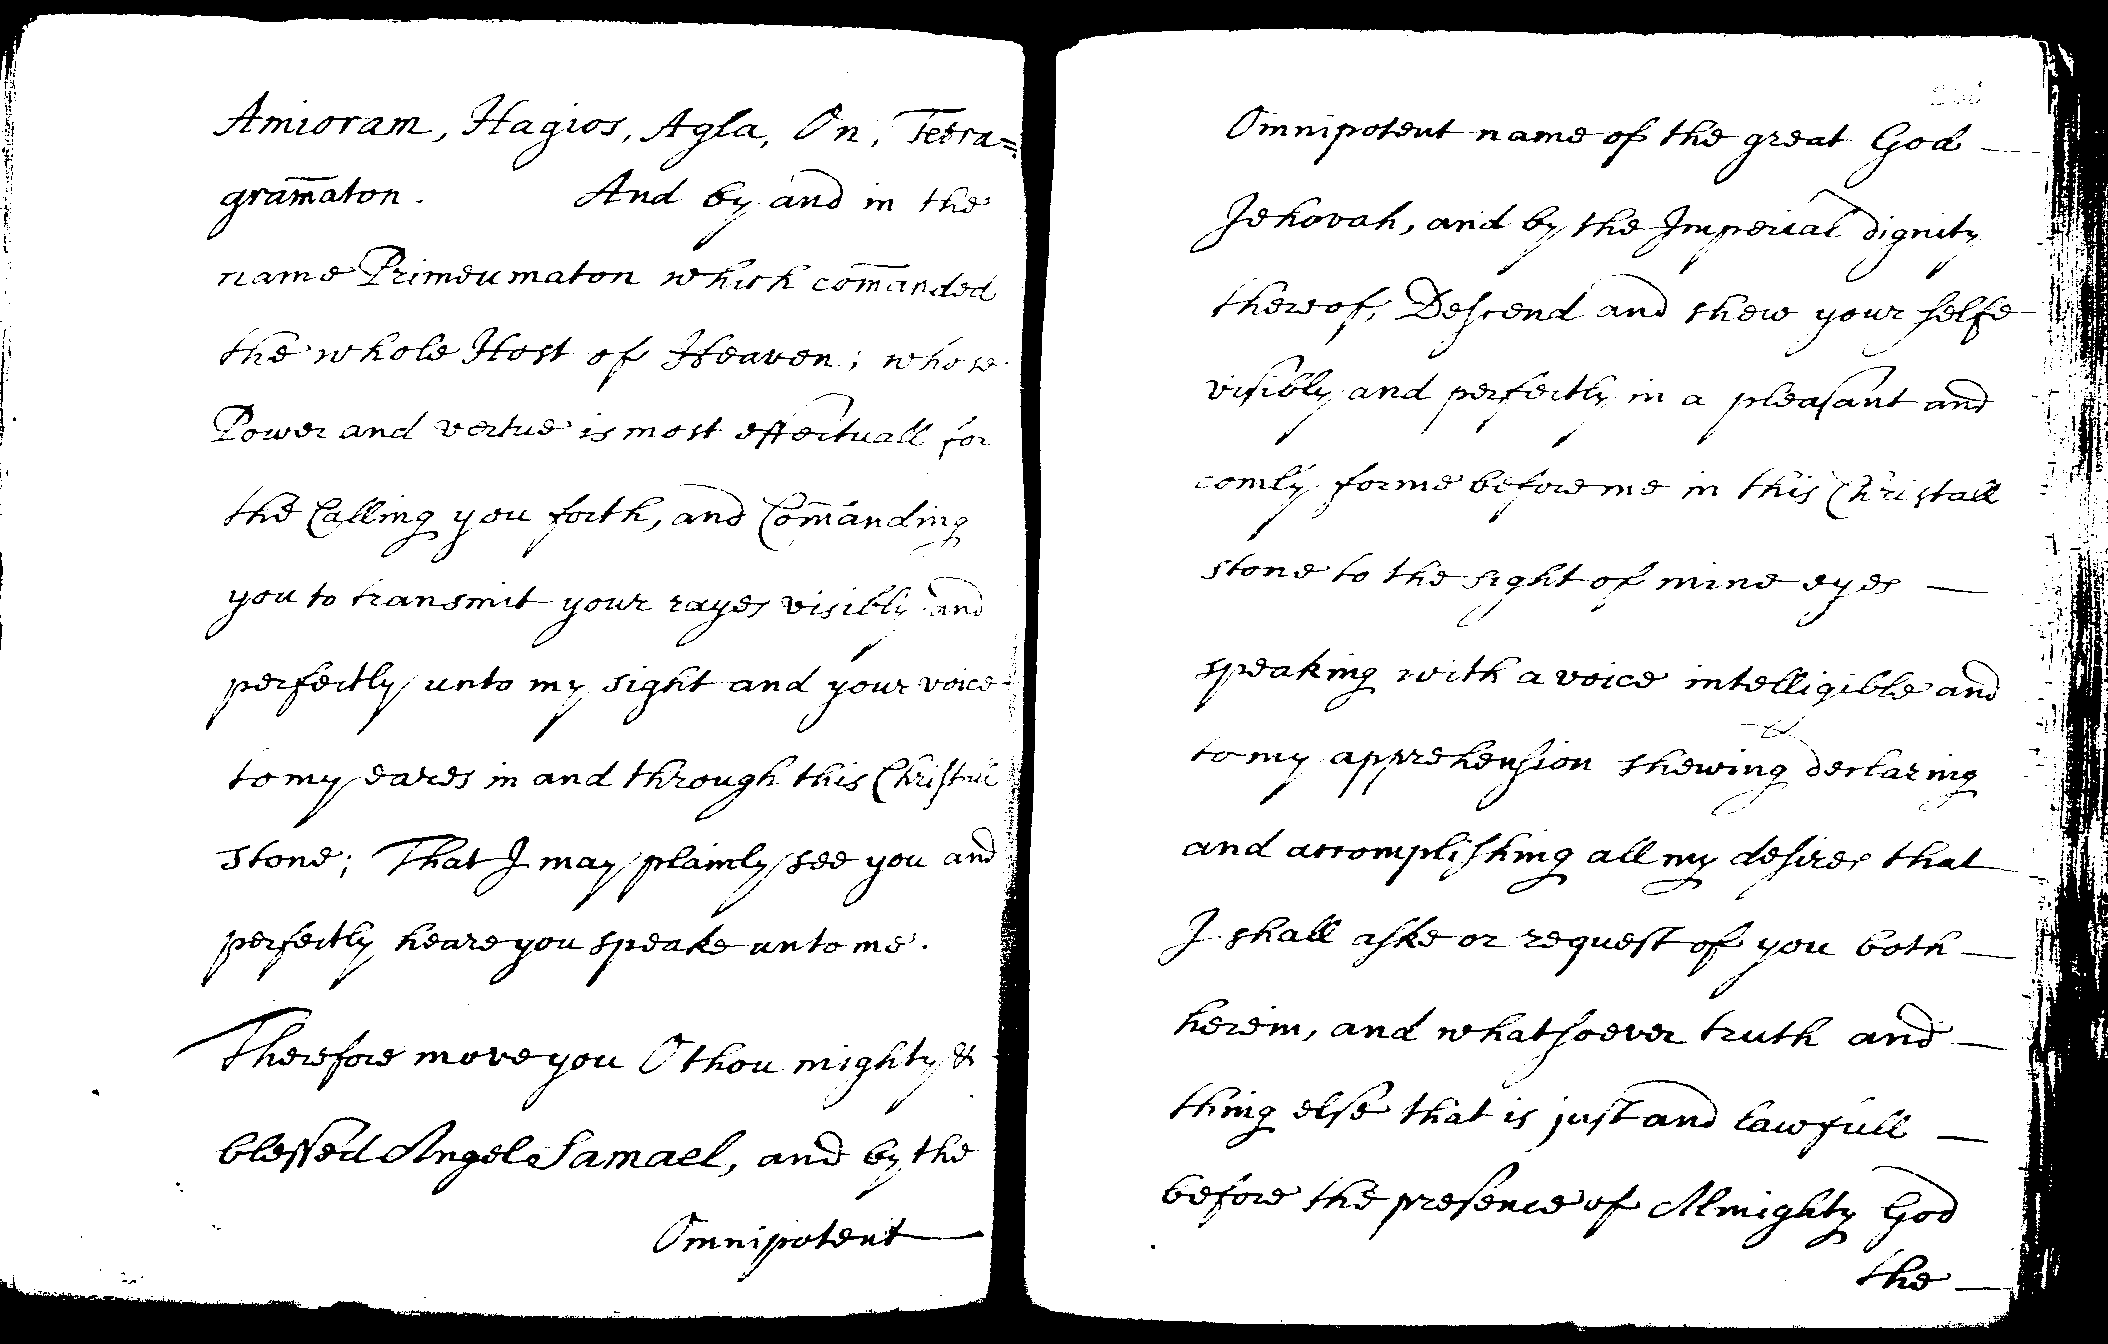 Amioram, Hagios, Agla, On, Tetra=
gram̅aton. And by and in the
name Primeumaton which com̅anded
the whole Host of Heaven; whose
Power and vertue is most effectuall for
the Calling you forth, and Com̅anding
you to transmit your rayes visibly and
perfectly unto my sight and your voice
to my eares in and through this Christall
stone; That I may plainly see you and
perfectly heare you speake unto me.
Therefore move you O thou mighty &
blessed Angel Samael, and by the
Omnipotent
Omnipotent name of the great God
Jehovah, and by the Imperial dignity
thereof, Descend and shew your selfe
visibly and perfectly in a pleasant and
comly forme before me in this Christall
stone to the sight of mine eyes
speaking with a voice intelligible and
to my apprehension shewing & declaring
and accomplishing all my desires that
I shall aske or request of you both
herein, and whatsoever truth and
thing else that is just and lawfull
before the presence of Almighty God
the